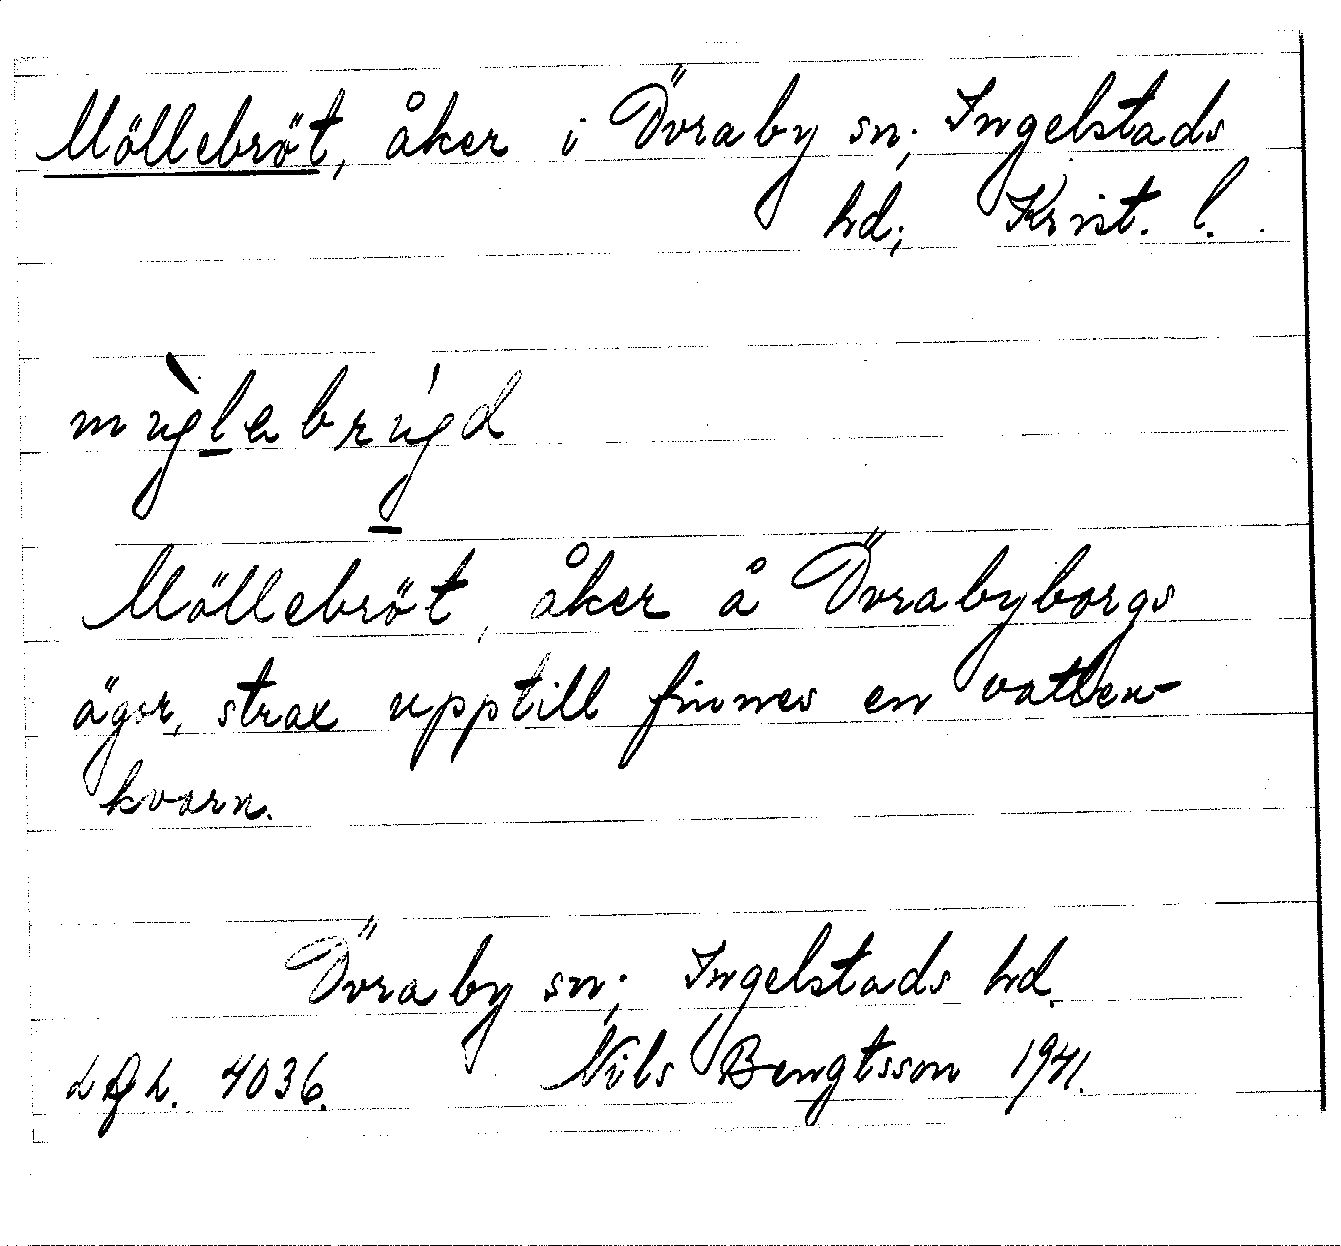 Möllebröt, åker i Övraby sn; Ingelstads
hd; Krist. l.
Möllebröt, åker å Övrabyborgs
ägor, strax upptill finnes en vatten-
kvarn.
Övraby sn; Ingelstads hd.
4036. Nils Bengtsson 1941.